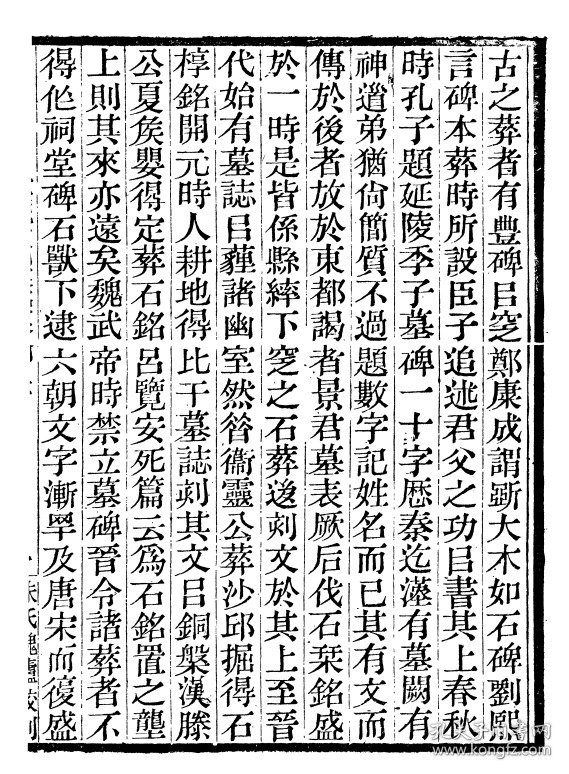 古之葬者有豐碑㠯窆鄭康成謂斲大木如石碑劉熙
言碑本葬時所設臣子追述君父之功㠯書其上春秋
時孔子題延陵季子墓碑一十字歷秦迄漢有墓闕有
神道弟猶尙簡質不過題數字記姓名而已其有文而
傳於後者放於東都謁者景君墓表厥后伐石琹銘盛
於一時是皆係縣繂下窆之石葬後刻文於其上至晉
代始有墓誌㠯薶諸幽室然昝衞靈公葬沙邱掘得石
椁銘開元時人耕地得比干墓誌刻其文㠯銅槃漢滕
公夏矦嬰得定葬石銘呂覽安死篇云爲石銘置之壟
上則其來亦遠矣魏武帝時禁立墓碑晉令諸葬者不
得作祠堂碑石獸下逮六朝文字漸甼及唐宋而復盛
朱氏槐廬校刊
孔夫子旧书网
www.kongfz.com